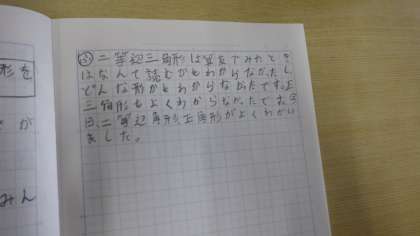 形を
が
みん
㋛二等辺三角形は算友でみたとき
はなんて読むかもわからなかたし
どんな形かもわからなかたです。正
三角形もよくわからなかたです。今
日、二等辺角形、正角形がよくわかり
ました。